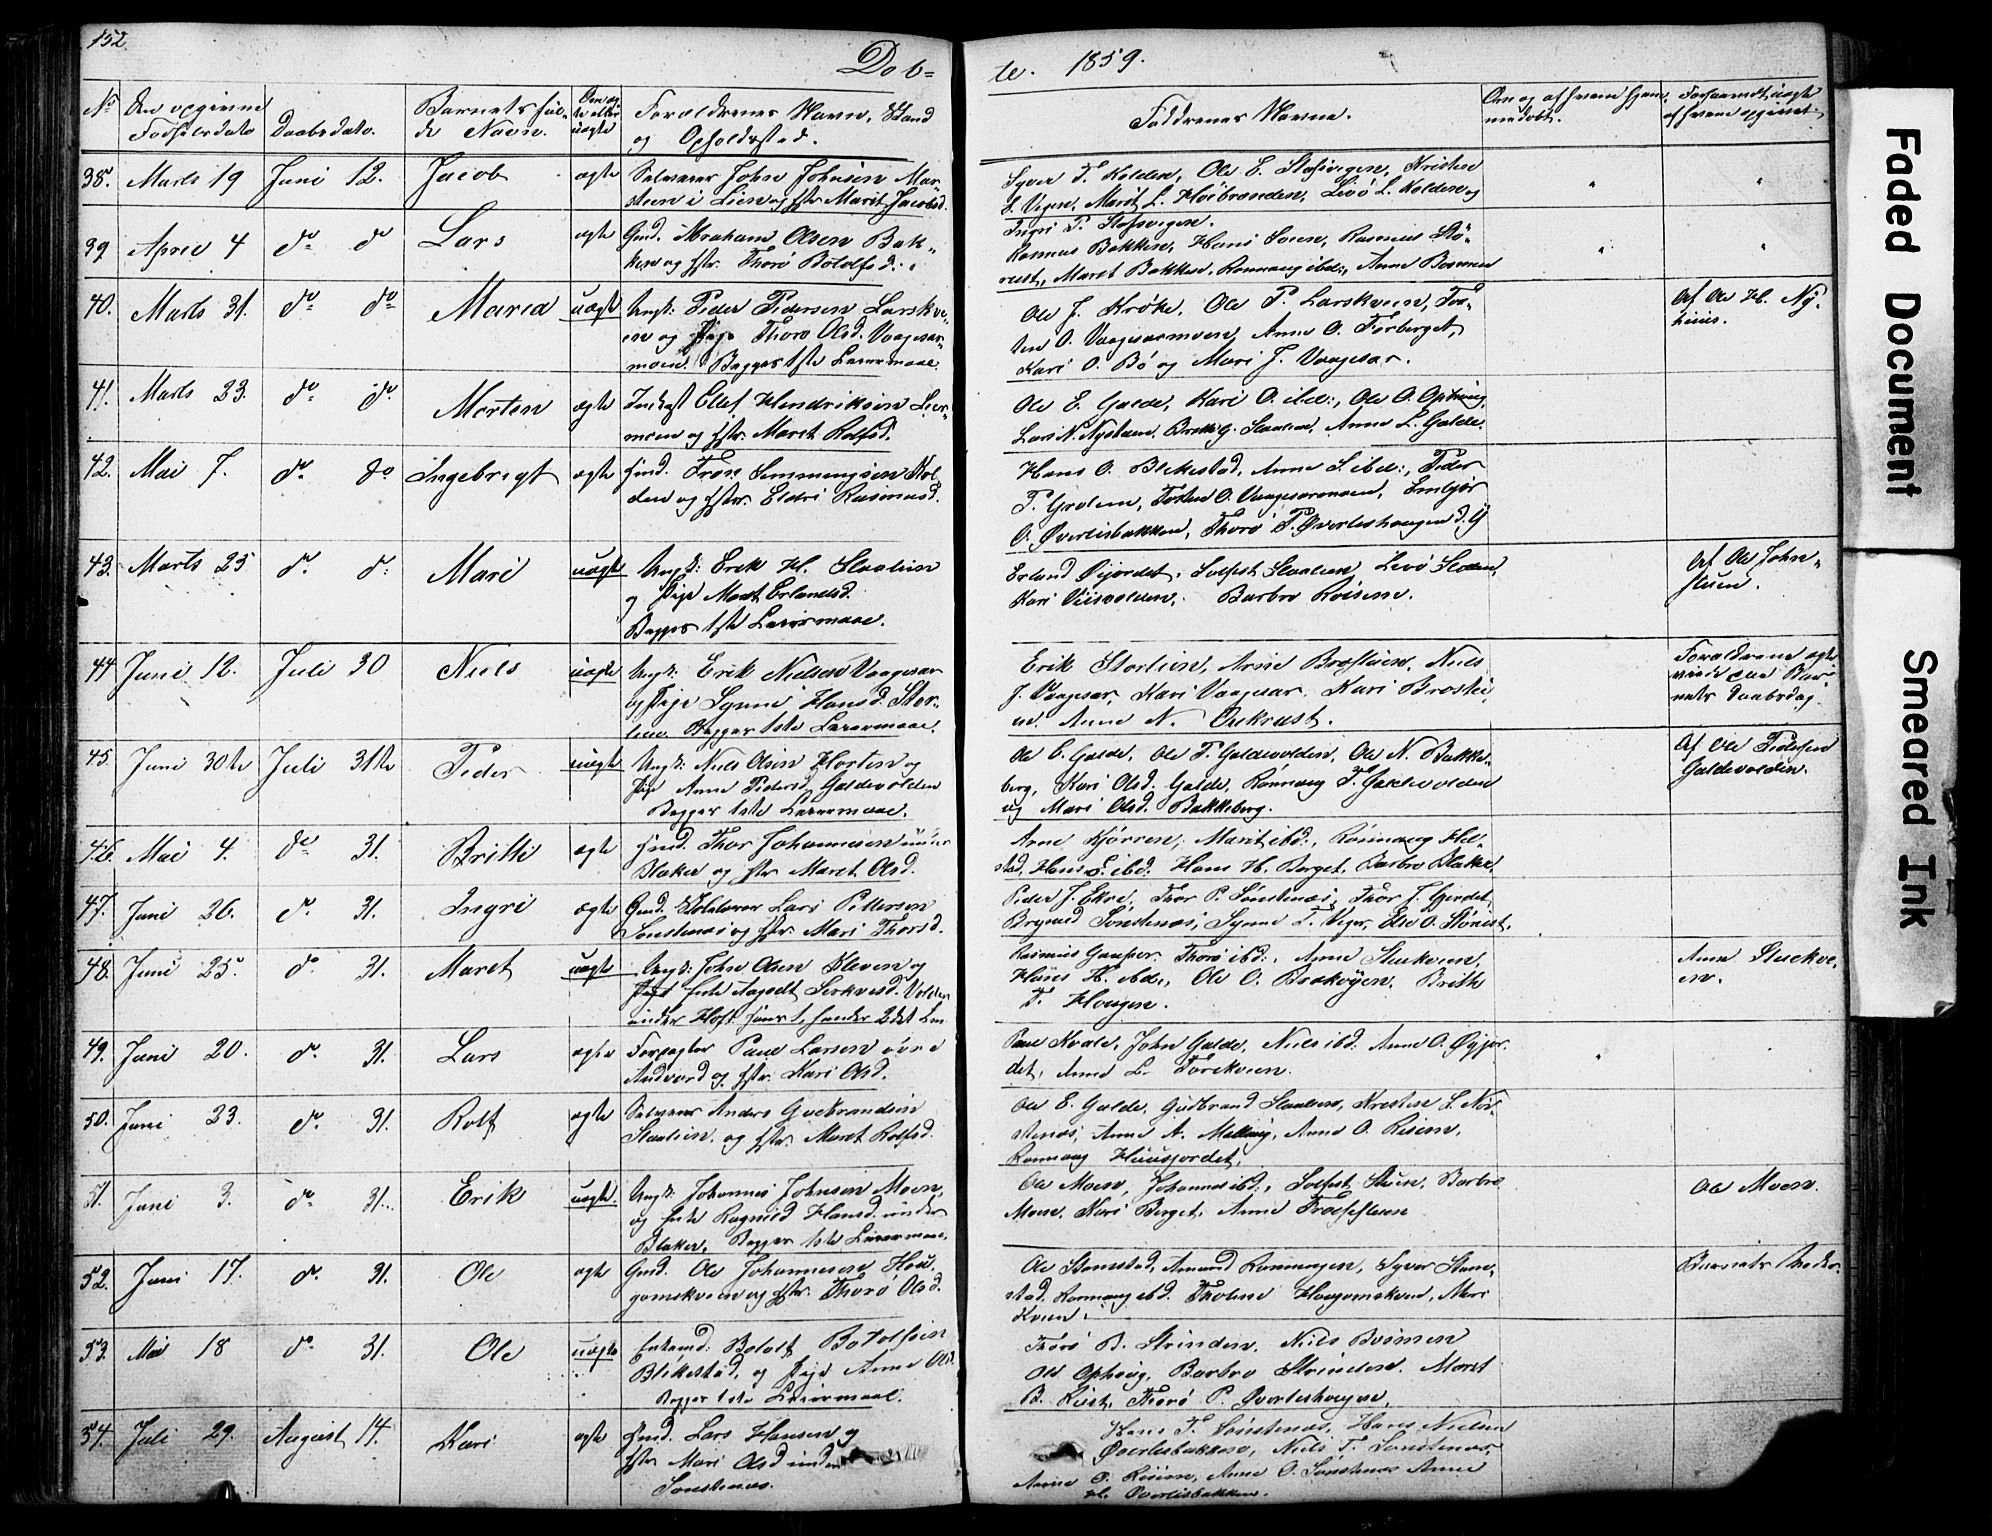 152.
Døb-
te. 1859.
No
Den opgivne Fødselsdato
Daabsdato.
Barnets fulde Navn.
Om ægte eller uægte
Forældrenes Navn, Stand og Opholdssted.
Faddrenes Navne.
Om og af hvem hjemmedøbt.
af hvem opgivet
38. Marts 19 Juni 12. Jacob ægte Selveier John Johnsen
stuen i Lien og Hstr. Marit Jacobsd.
Syver T. Kolden, Ole E. Kristen
S. Vigen, Marit L. Høibranden, Livø L. Kolden og
Ingri P.
39. April 4 do do Lars ægte Gmd. Abraham Olsen Bak-
ken og Hstr. Thorø Botolfsd.
Rasmus Bakken, Hans Soen, Rasmus Stø-
rust, Maret Bakken, Rønnaug ibd:, Anne Bosmen
40. Marts 31. do do Maria uægte Ungk: Peder Pedersen Larskve-
en og Pige Thorø Olsd. Vaagesar-
moen. Begges 1ste Leiermaal.
Ole J. Krøke, Ole P. Larskveen, Tor-
sten O. Vaagesarmoen, Anne O. Forberget,
Kari O. Bø og Mari J. Vaagesar.
Af Ole H. Ny-
41. Marts 23. do do Morten ægte Indkst Ellef Hendriksen Lier-
moen og Hstr. Maret Rolfsd.
Ole E. Galde, Kari O. ibd:, Ole O. Ophoug,
Lars N. Nystuen, Brith G. Staalien, Anne L. Galde.
42. Mai 7. do do Ingebrigt ægte Hmd. Tron Simmengsen Kol-
den og Hstr. Eldri Rasmusd.
Hans O. Blekestad, Anne S. ibd:, Peder
P. Grolem, Torsten O. Vaagesarmoen, Embjør
O. Øverlisbakken, Thorø P. Øverlishougen
43. Marts 25 do do Mari uægte Ungk: Erik H. Staalien
og Pige Maret Erlandsd.
Begges 1ste Leiermaal.
Erland Øijordet, Solfest Staalien, Livø Sloden,
Kari Barbro Risem.
Af Ole John-
stuen.
44 Juni 12. Juli 30 Niels uægte Ungk: Erik Nielsen Vaagesar
og Pige Synni Hansd. Stor-
lien. Begges 1ste Leiermaal.
Erik Storlien, Arne Brostuen, Niels
J. Vaagesar, Kari Vaagesar, Kari Broste-
Anne N. Onkrust.
Forældrene ægte
viede paa Bar-
nets Daabsdag.
45. Juni 30te Juli 31te Peder uægte Ungk: Niels Olsen Horten og
Pige Anne Pedersd. Galdevolden
Begges 1ste Leiermaal.
Ole E. Galde, Ole P. Galdevolden, Ole N. Bakke-
berg, Kari Olsd. Galde, Rønnaug P. Galdevolden
og Mari Olsd. Bakkeberg.
Af Ole Pedersen
Galdevolden.
46. Mai 4. do 31. Britte ægte Hmd. Thor Johannesen under
Blaker og Hstr. Maret Olsd.
Arne Kjørren, Marit ibd:, Rønnaug
Hans ibd. Hans H. Berget, Barbro Blaker
47. Juni 26. do 31. Ingri ægte Gmd. Lars Pedersen
Sønstenæs og Hstr. Mari Thorsd.
Peder J. Ekre, Thor P. Sønstenæs, Thor J. Gjerdet,
Brynild Sønstenæs, Synne T. Else O. Størust.
48. Juni 25. do 31. Maret uægte Ungk: John Olsen Kleven og
under
Rasmus Thorø ibd:, Anne Stuekveen,
Hans H. ibd:, Ole O. Brakøyen, Brith
T. Hougen.
Anne Stuekve-
en.
49. Juni 20. do 31. Lars ægte Forpagter Paul Larsen øvre
Andvord og Hstr. Kari Olsd.
Paul Kvale, John Galde, Niels ibd: Anne O. Øyjor-
det, Anne L.
50. Juni 23. do 31. Rolf ægte Selveier Anders Gudbrandsen
Staalien, og Hstr. Maret Rolfsd.
Ole E. Galde, Gudbrand Staalien, Kristen S. Nør-
stenæs, Anne A. Melling, Anne O. Risem,
Rønnaug Huusjordet.
51. Juni 3. do 31. Erik uægte Ungk: Johannes Johnsen Moen,
og Enke Ragnild Hansd. under
Blaker. Begges 1ste Leiermaal.
Ole Moen, Johannes ibd:, Solfest Stuen, Barbro
Moen, Kari Berget, Anne
Ole Moen.
52. Juni 17. do 31. Ole ægte Gmd. Ole Johannesen Hou-
gomskveen og Hstr. Thorø Olsd.
Ole Stamstad, Amund Rønnogen, Syver Stam-
stad, Rønnaug ibd. Tholine Hougomskveen, Mari
Kveen.
Barnets Moder.
53. Mai 18 do 31. Ole uægte Enkemd: Botolf Botolfsen
Blekestad, og Pige Anne Olsd.
Begges 1ste Leiermaal.
Thorø B. Strinden, Niels Bosmen
Ole Ophoug, Barbro Strinden, Maret
B. Thorø P. Øverlishougen,
54. Juli 29. August 14. Kari ægte Hmd. Lars Hansen og
Hstr Mari Olsd under
Sønstenæs.
Hans T. Sønstenæs, Hans Nielsen
Øverlisbakken, Niels T. Sønstenæs,
Anne O. Risem, Anne O. Sønstenæs Anne
H. Øverlisbakken.
Faded Document
Smeared Ink